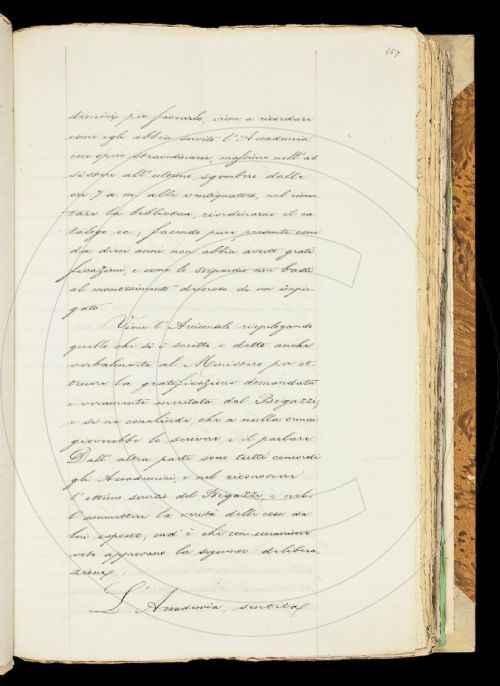 467
dronicij per favorirlo, viene a ricordare
come egli abbia servito l'Accademia
con opere straordinarie, massime nell'as
sistere all'ultimo sgombro dalle
ore 7 a.m. alle ventiquattro, nel rior
la biblioteca, riordinarne il ca
talogo ec; facendo pure presente come
da dieci anni non abbia avuto grati
ficazioni, e come lo stipendio non basti
al mantenimento decoroso di un impie
gato.
Viene l'Arcicensolo riepilogando
quello che si è scritto e detto anche
verbalmente al Ministero per ot-
tenere la gratificazione domandata
e vivamente meritata dal Bigazzi,
e si ne conchiude, che a nulla omai
gioverebbe lo scrivere e il parlare.
Dall'altra parte sono tutti concordi
gli Accademici, e nel riconoscere
l'ottimo servizio del Bigazzi, e nel-
l'ammettere la verità delle cose da
lui esposte; ond'è che con unanime
voto approvano la seguente delibera
zione:
L'Accademia, sentita